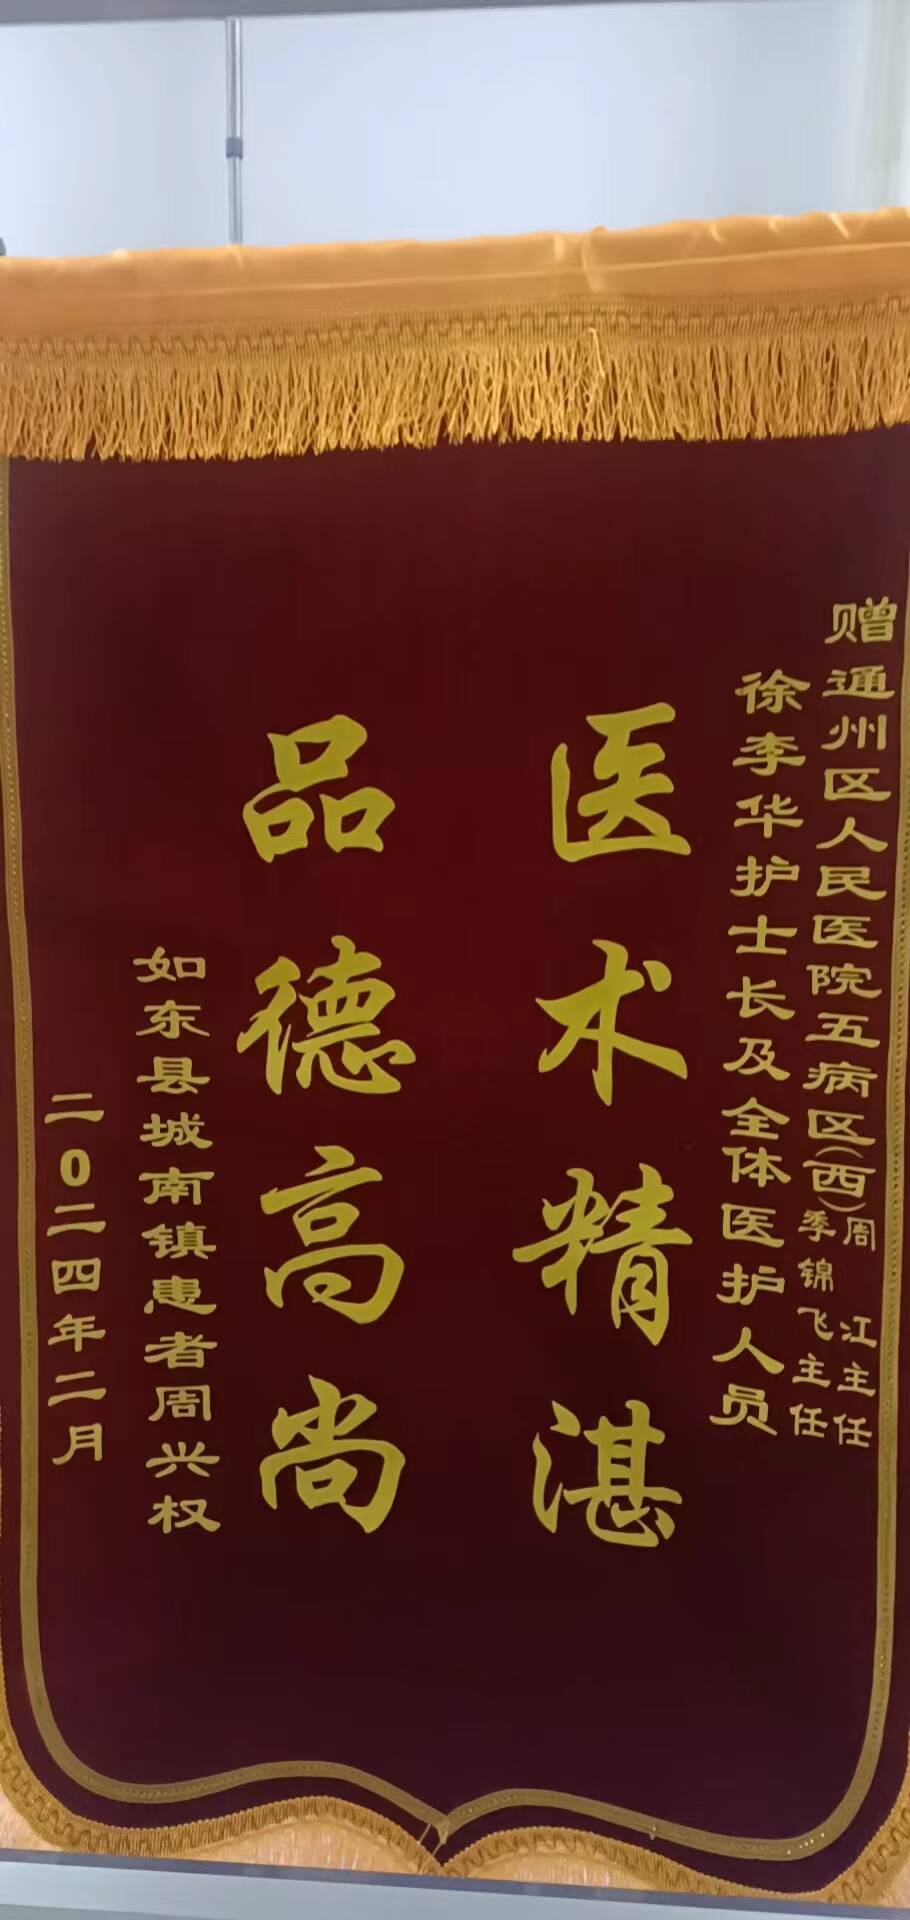 赠通州区人民医院五病区(西)周江主任
季锦飞主任
徐李华护士长及全体医护人员
医术精湛
品德高尚
如东县城南镇患者周兴权
二0二四年二月